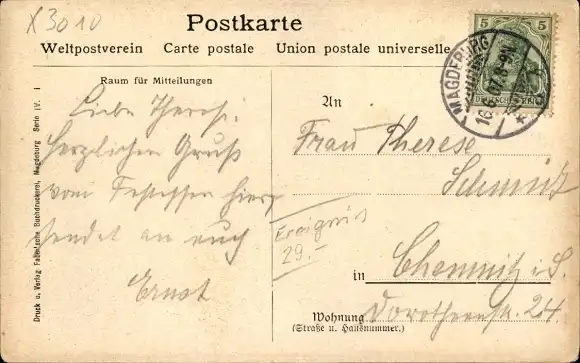 X3010
Postkarte
Weltpostverein Carte postale Union postale universelle
Raum für Mitteilungen
Liebe Therese!
Herzlichen Gruß
vom Festessen hier
sendet an euch
Ernst
An
Frau Therese
Schmidt
Ereignis
29.-
in Chemnitz i. S.
Wohnung Dorotheenstr. 24.
(Straße u. Hausnummer.)
Druck u. Verlag Faber'sche Buchdruckerei, Magdeburg Serie IV. 1
5 5
DEUTSCHES REICH
MAGDEBURG